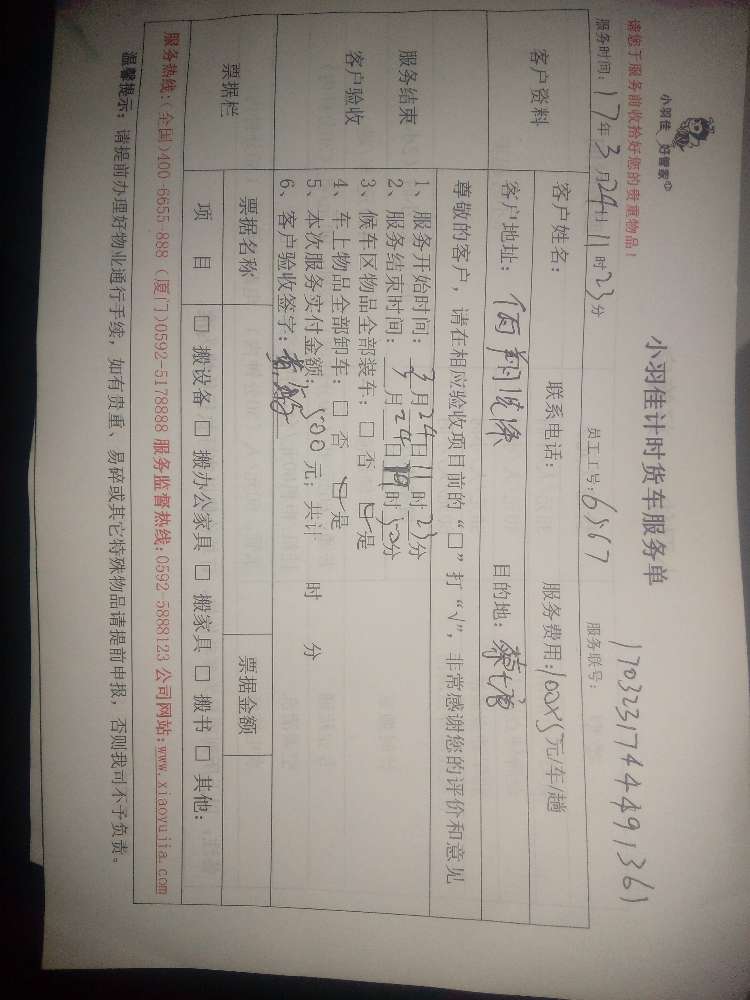 小羽佳 好管家
请您于服务前收拾好您的贵重物品！
小羽佳计时货车服务单
170323174449136)
服务时间：17年3月24日11时23分 员工工号：6567 服务联号：
客户资料
客户姓名： 联系电话： 服务费用：100×5元/车/趟
客户地址：佰翔 目的地：
尊敬的客户，请在相应验收项目前的“□”打“√”，非常感谢您的评价和意见
服务结束
客户验收
1、服务开始时间：3月24日11时23分
2、服务结束时间：3月24日19时50分
3、候车区物品全部装车：□ 否 □ 是
4、车上物品全部卸车：□ 否 □ 是
5、本次服务实付金额：500元；共计 时 分
6、客户验收签字：
票据栏
票据名称 票据金额
项 目 □ 搬设备 □ 搬办公家具 □ 搬家具 □ 搬书 □ 其他：
服务热线：(全国)400-6655-888 (厦门)0592-5178888 服务监督热线：0592-5888123 公司网站：www.xiaoyujia.com
温馨提示：请提前办理好物业通行手续，如有贵重、易碎或其它特殊物品请提前申报，否则我司不予负责。